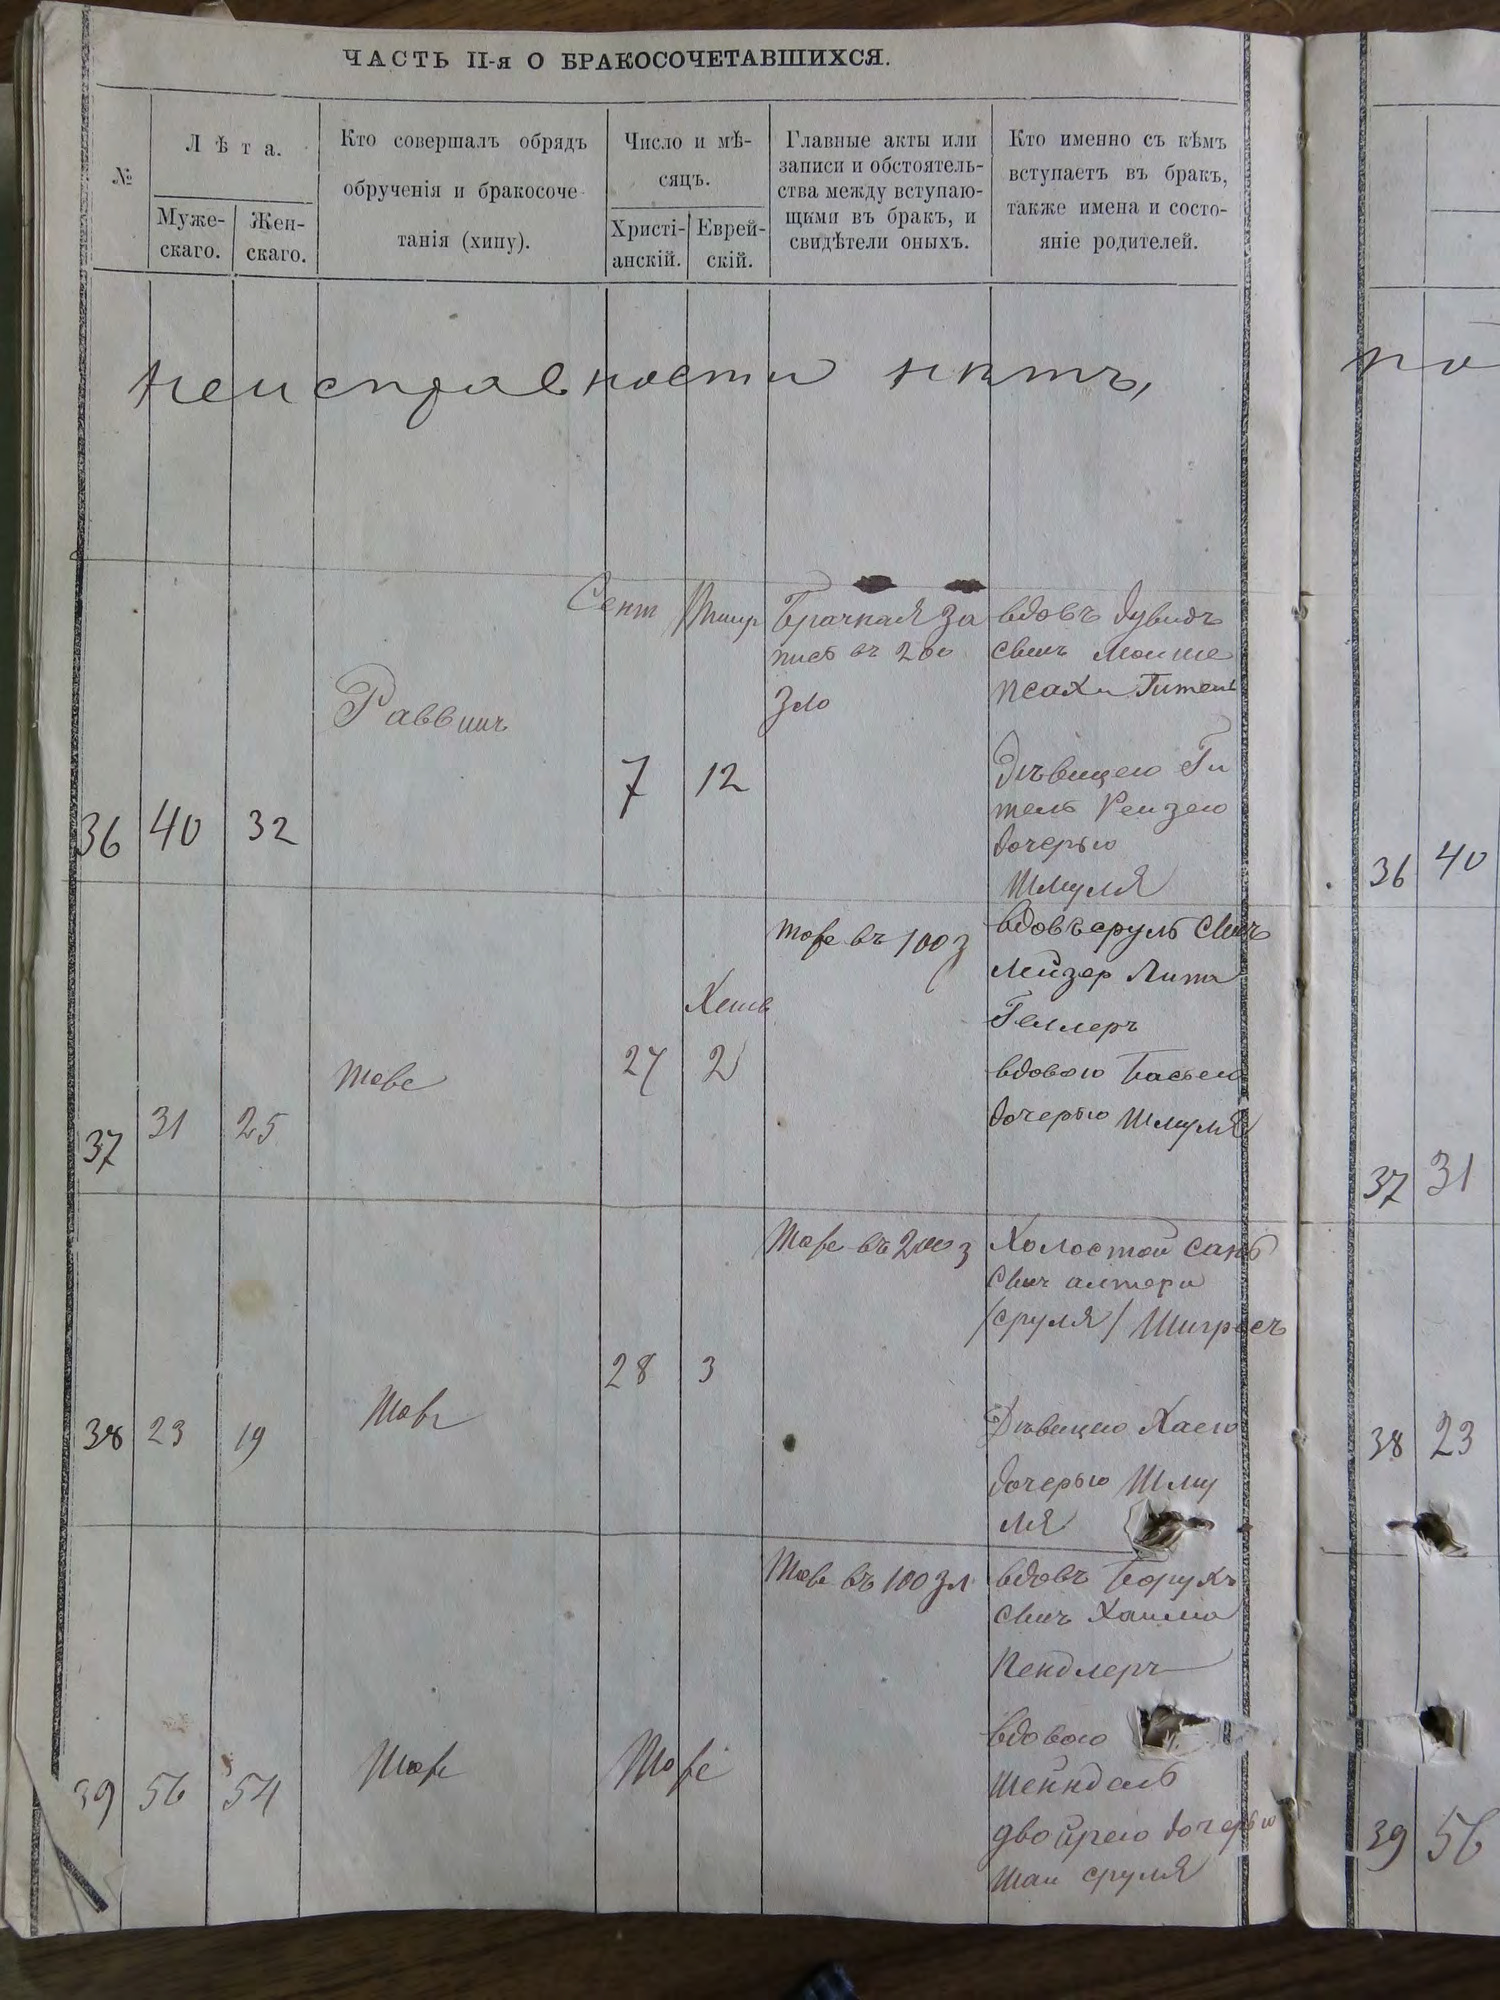 ЧАСТЬ II-я О БРАКОСОЧЕТАВШИХСЯ.
№
Лѣта.
Муже-
скаго.
Жен-
скаго.
Кто совершалъ обрядъ
обрученія и бракосоче-
танія (хипу).
Число и мѣ-
сяцъ.
Христі-
анскій.
Еврей-
скій.
Главные акты или
записи и обстоятель-
ства между вступаю-
щыми въ бракъ, и
свидѣтели оныхъ.
Кто именно съ кѣмъ
вступаетъ въ бракъ,
также имена и состо-
яніе родителей.
неисправности нѣтъ,
по
36
40
32
Раввинъ
Сент
7
Тишр
12
Брачная за
пись въ 200
зло
вдовъ Дувидъ
свинъ Мошие
псахи Гитель
Дѣвицею Ги
тель Рейзею
дочерью
Шмуля
36 40
37
31
25
тоже
27
Хешв
2
тоже въ 100 з
вдовъ сруль свинъ
Лейзер Липа
Геллеръ
вдовою Басьею
дочерью Шмуля
37 31
38
23
19
Тоже
28
3
Тоже въ 200 з
Холостой сань
свинъ алтери
/сруля/
Дѣвицею Хаею
дочерью Шму
ля
38 23
39
56
54
Тоже
Тоже
Тоже въ 100 зл
вдовъ Борухъ
свинъ Хаима
Кендлеръ
вдовою
Шейндель
двойрею дочерью
шаи сруля
39 56